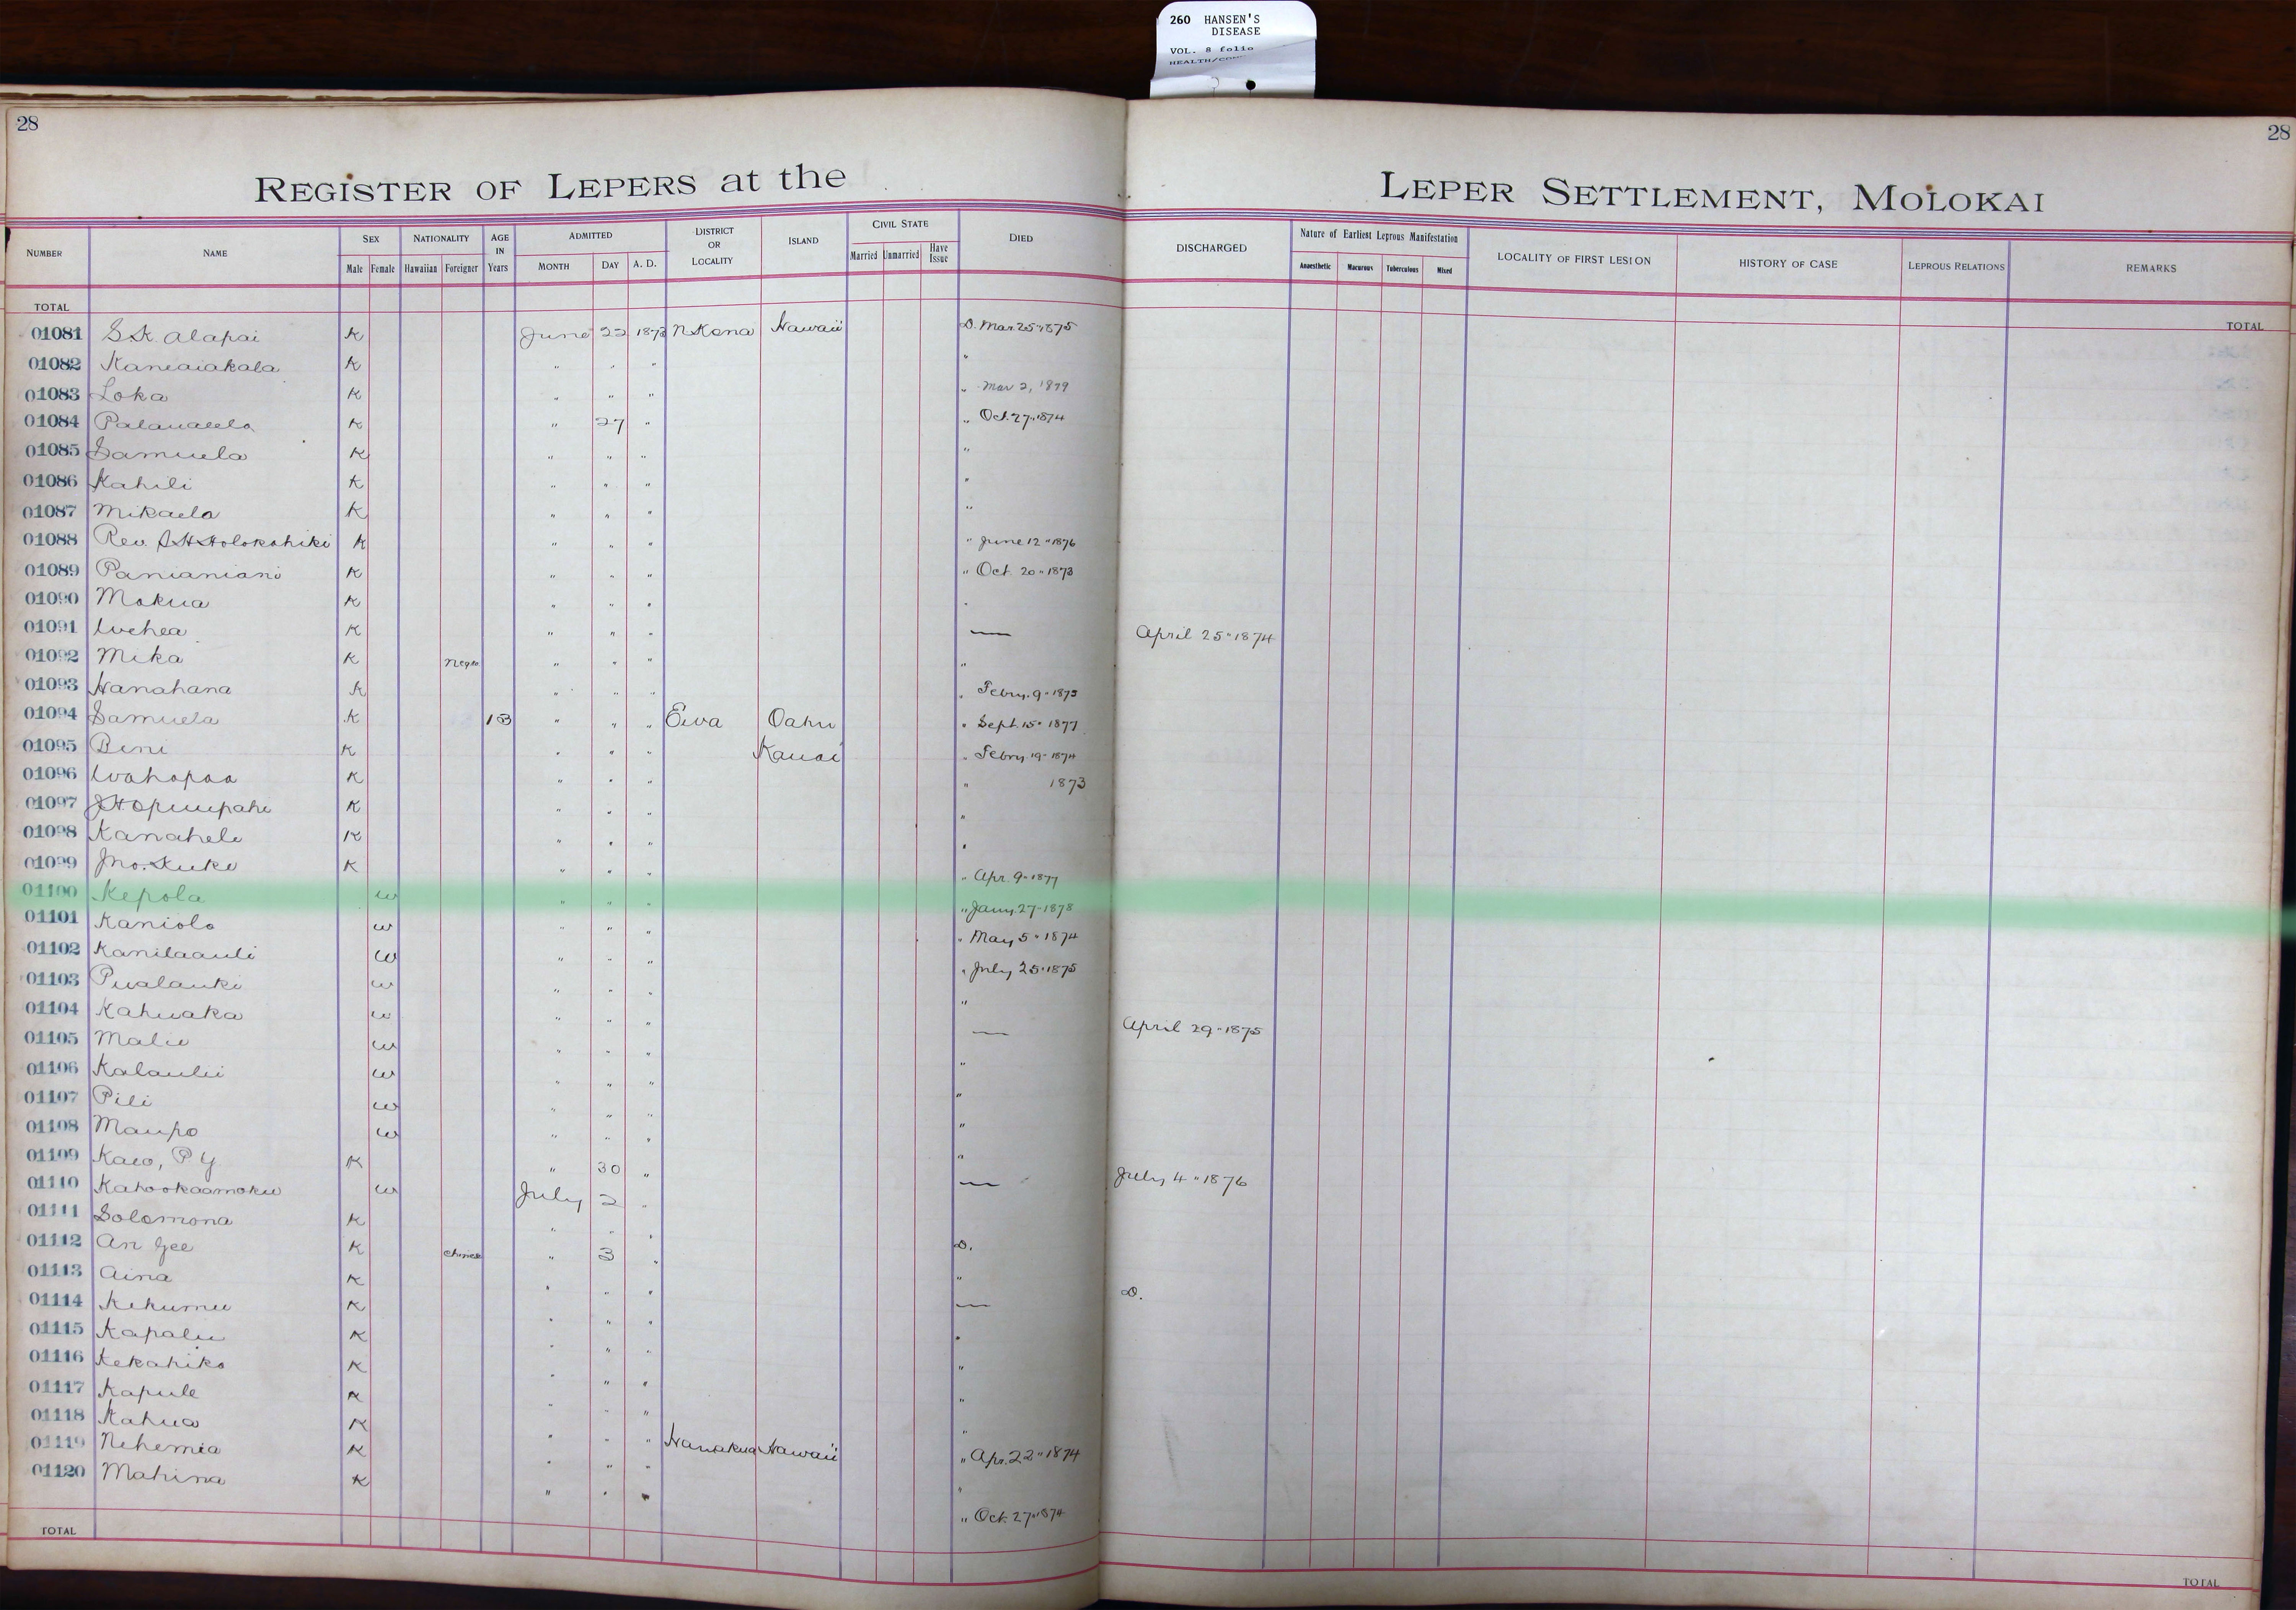 260 HANSEN'S
DISEASE
VOL. 8 folio
28
28
REGISTER OF LEPERS at the LEPER SETTLEMENT, MOLOKAI
NUMBER NAME SEX NATIONALITY AGE IN Years ADMITTED DISTRICT OR LOCALITY ISLAND CIVIL STATE DIED DISCHARGED Nature of Earliest Leprous Manifestation LOCALITY OF FIRST LESION HISTORY OF CASE LEPROUS RELATIONS REMARKS
Male Female Hawaiian Foreigner MONTH DAY A. D. Married Unmarried Have Issue Anaesthetic Macurous Tuberculous Mixed
TOTAL TOTAL
01081 S.K. Alapai K June 22 1873 N Kona Hawaii D. Mar. 25 " 1875
01082 Kaneaiakala K " " " "
01083 Loka K " " " " Mar 2, 1879
01084 K " 27 " " Oct. 27 " 1874
01085 Samuela K " " " "
01086 Kahili K " " " "
01087 Mikaela K " " " "
01088 Rev. K " " " " June 12 " 1876
01089 Panianiani K " " " " Oct. 20 " 1873
01090 Mokua K " " " "
01091 Wehea K " " " — April 25 " 1874
01092 Mika K Negro " " " "
01093 Hanahana K " " " " Febry. 9 "
01094 Samuela K 13 " " " Ewa Oahu " Sept. 15 " 1877
01095 Beni K " " " Kauai " Febry 19 " 1874
01096 Wahapaa K " " " " 1873
01097 J.H. K " " " "
01098 Kanahele K " " " "
01099 Jno. Kuke K " " " " Apr. 9 " 1877
01100 Kepola w " " " " Jany. 27 " 1878
01101 Kaniolo w " " " " May 5 " 1874
01102 Kanilaauli w " " " " July 25 " 1875
01103 Pualauki w " " " "
01104 Kahuaka w " " " — April 29 " 1875
01105 Malie w " " " "
01106 Kalaulii w " " " "
01107 Pili w " " " "
01108 Maupo w " " " "
01109 Kaeo, P Y K " 30 " — July 4 " 1876
01110 Kahookaamoku w July 2 "
01111 Solomona K " " " D.
01112 An Gee K Chinese " 3 " "
01113 Aina K " " " — D.
01114 Kekumu K " " " "
01115 Kapalu K " " " "
01116 Kekahiko K " " " "
01117 Kapule K " " " "
01118 Kahua K " " " Hamakua Hawaii " Apr. 22 " 1874
01119 Nehemia K " " " "
01120 Mahina K " " " " Oct. 27 " 1874
TOTAL TOTAL